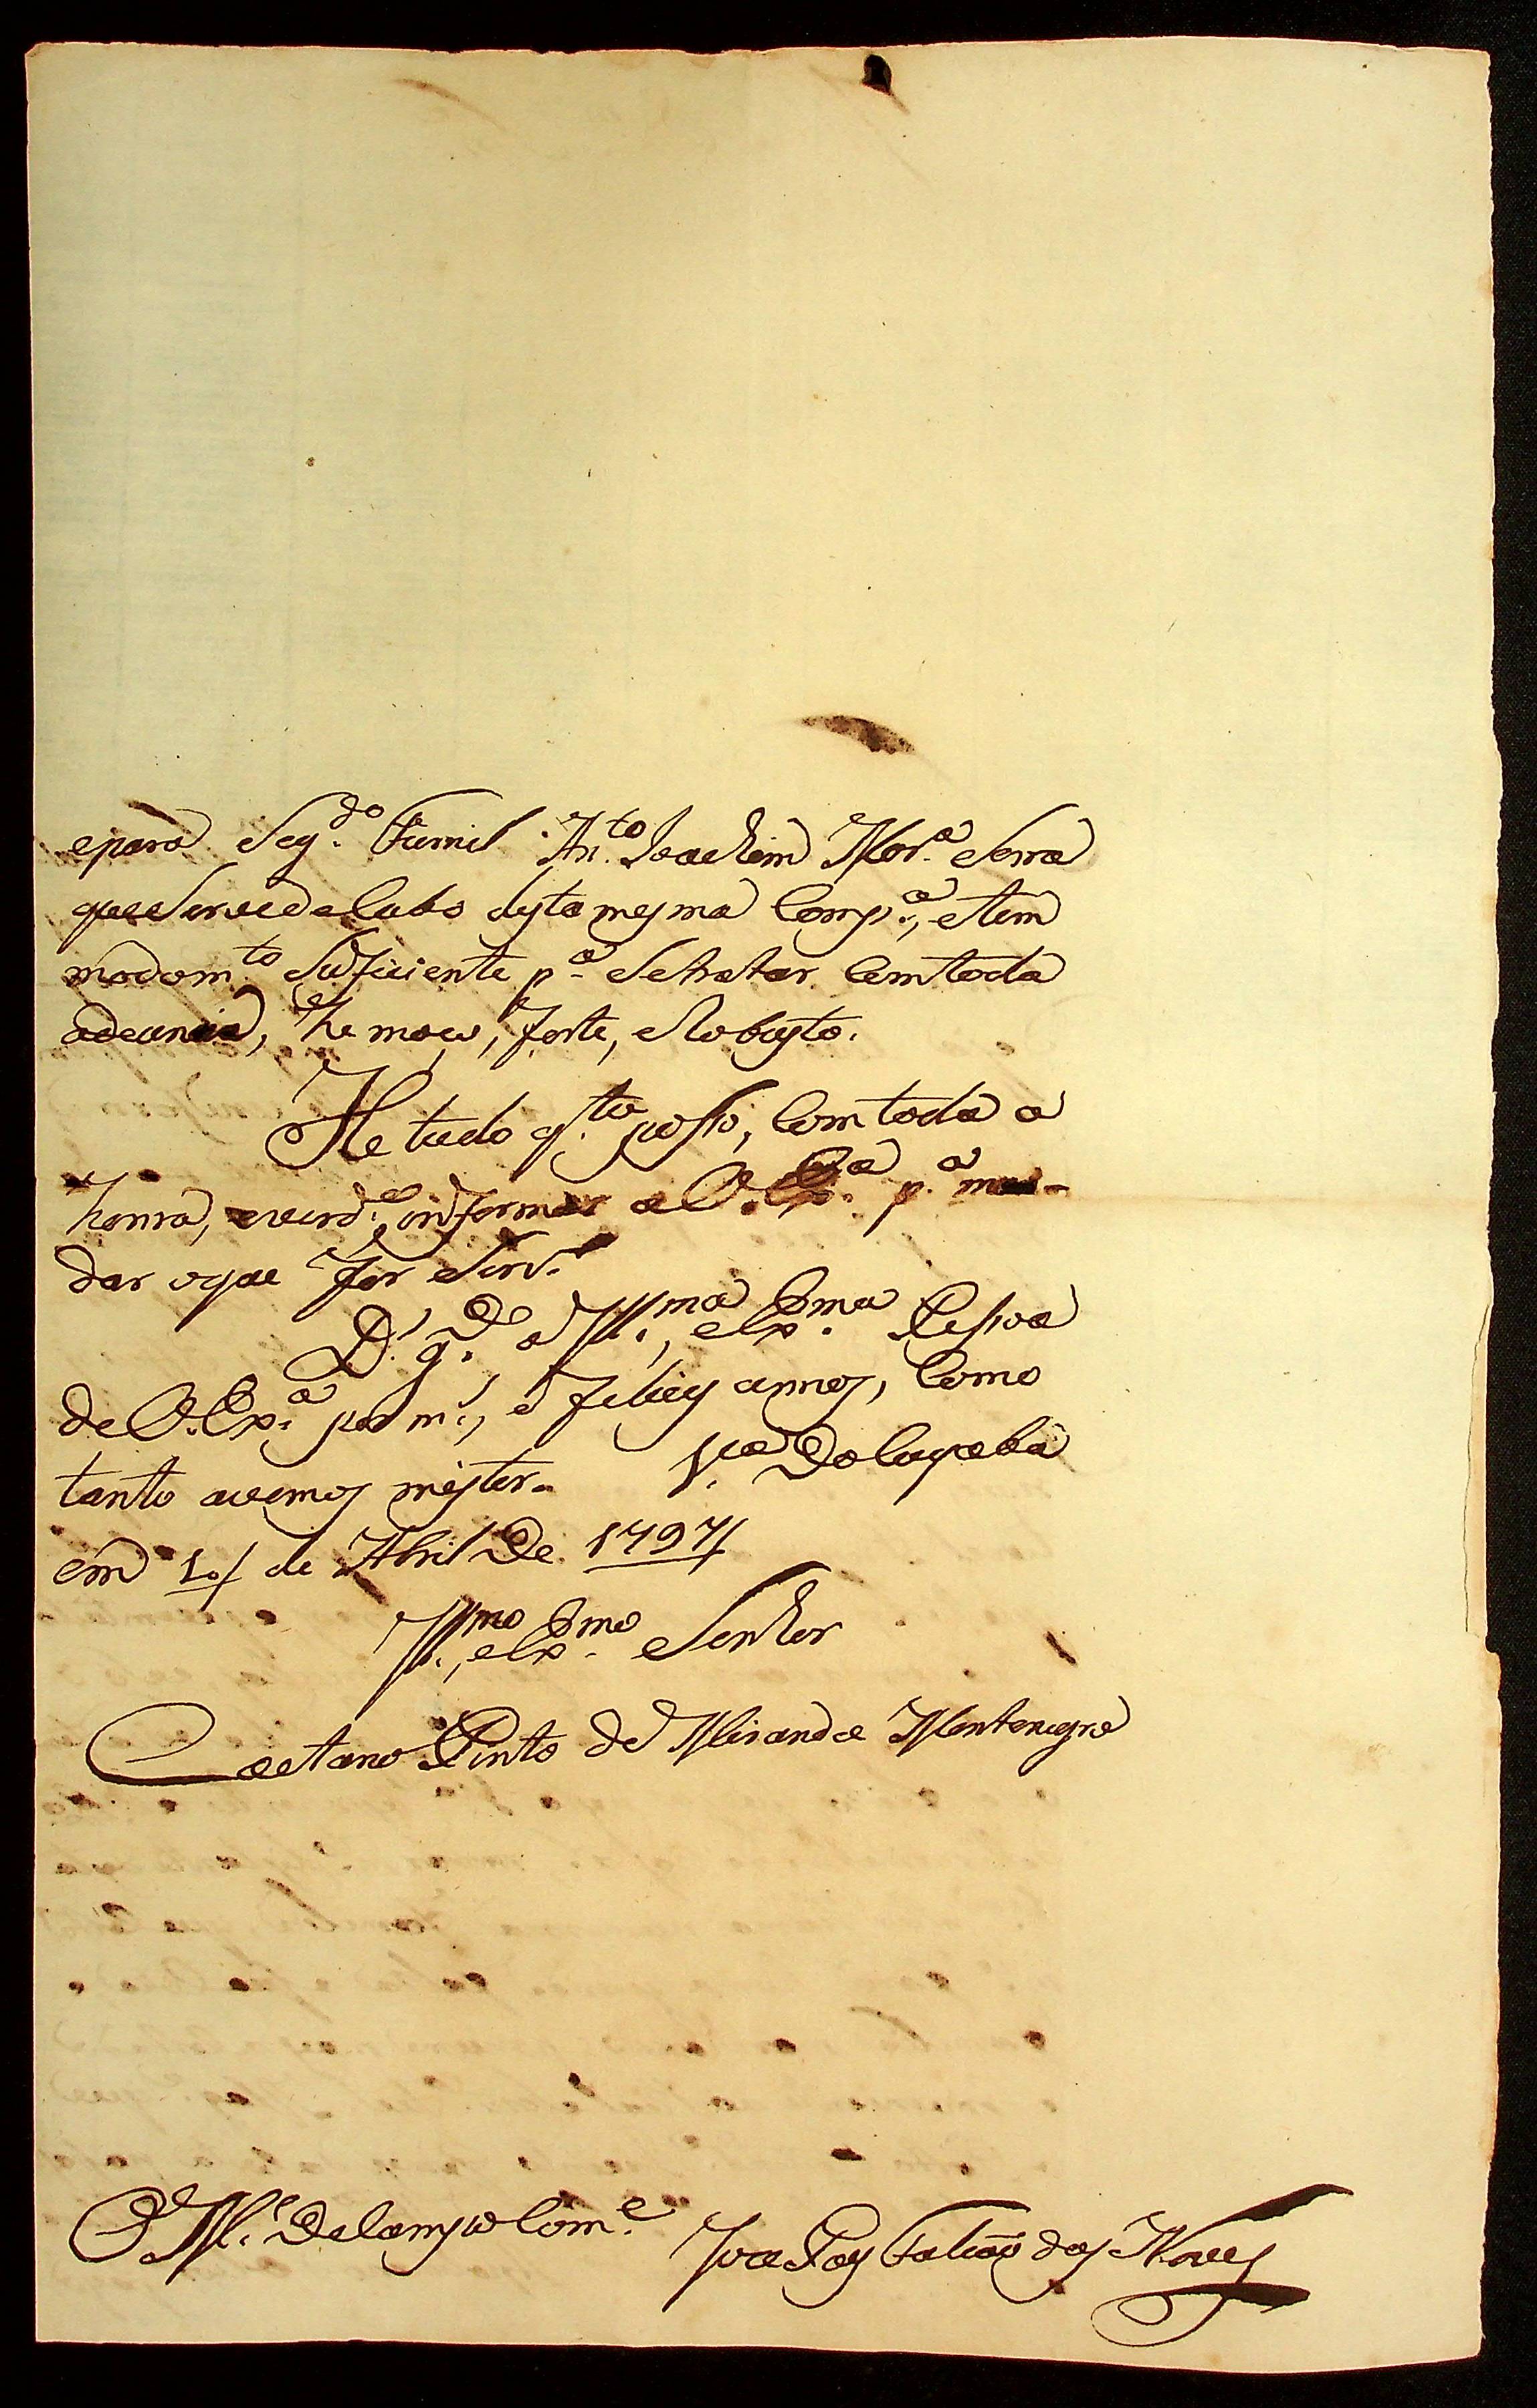 epara Seg.do Furriel An.to Joachim Mor.a Serra
que Serve de Cabo desta mesma Comp.a, e tem
modom.to Suficiente p.a Se tratar Com toda
adecencia, he moço, forte, e Robusto.
He tudo q.to posso, Com toda a
honra, everd.e informar a V. Ex.a p.a man-
dar oque for Serv.o
D.s g.de a Ill.ma, e Ex.ma Pessoa
de V. Ex.a por m.s, e felices annos, Como
tanto avemos mister. V.a Do Cuyaba
em 10/ de Abril De 1797/
Ill.mo, e Ex.mo Senhor
Caetano Pinto de Miranda Montenegro
O M.e De Campo Com.e Joze Paes Falcaõ das Neves